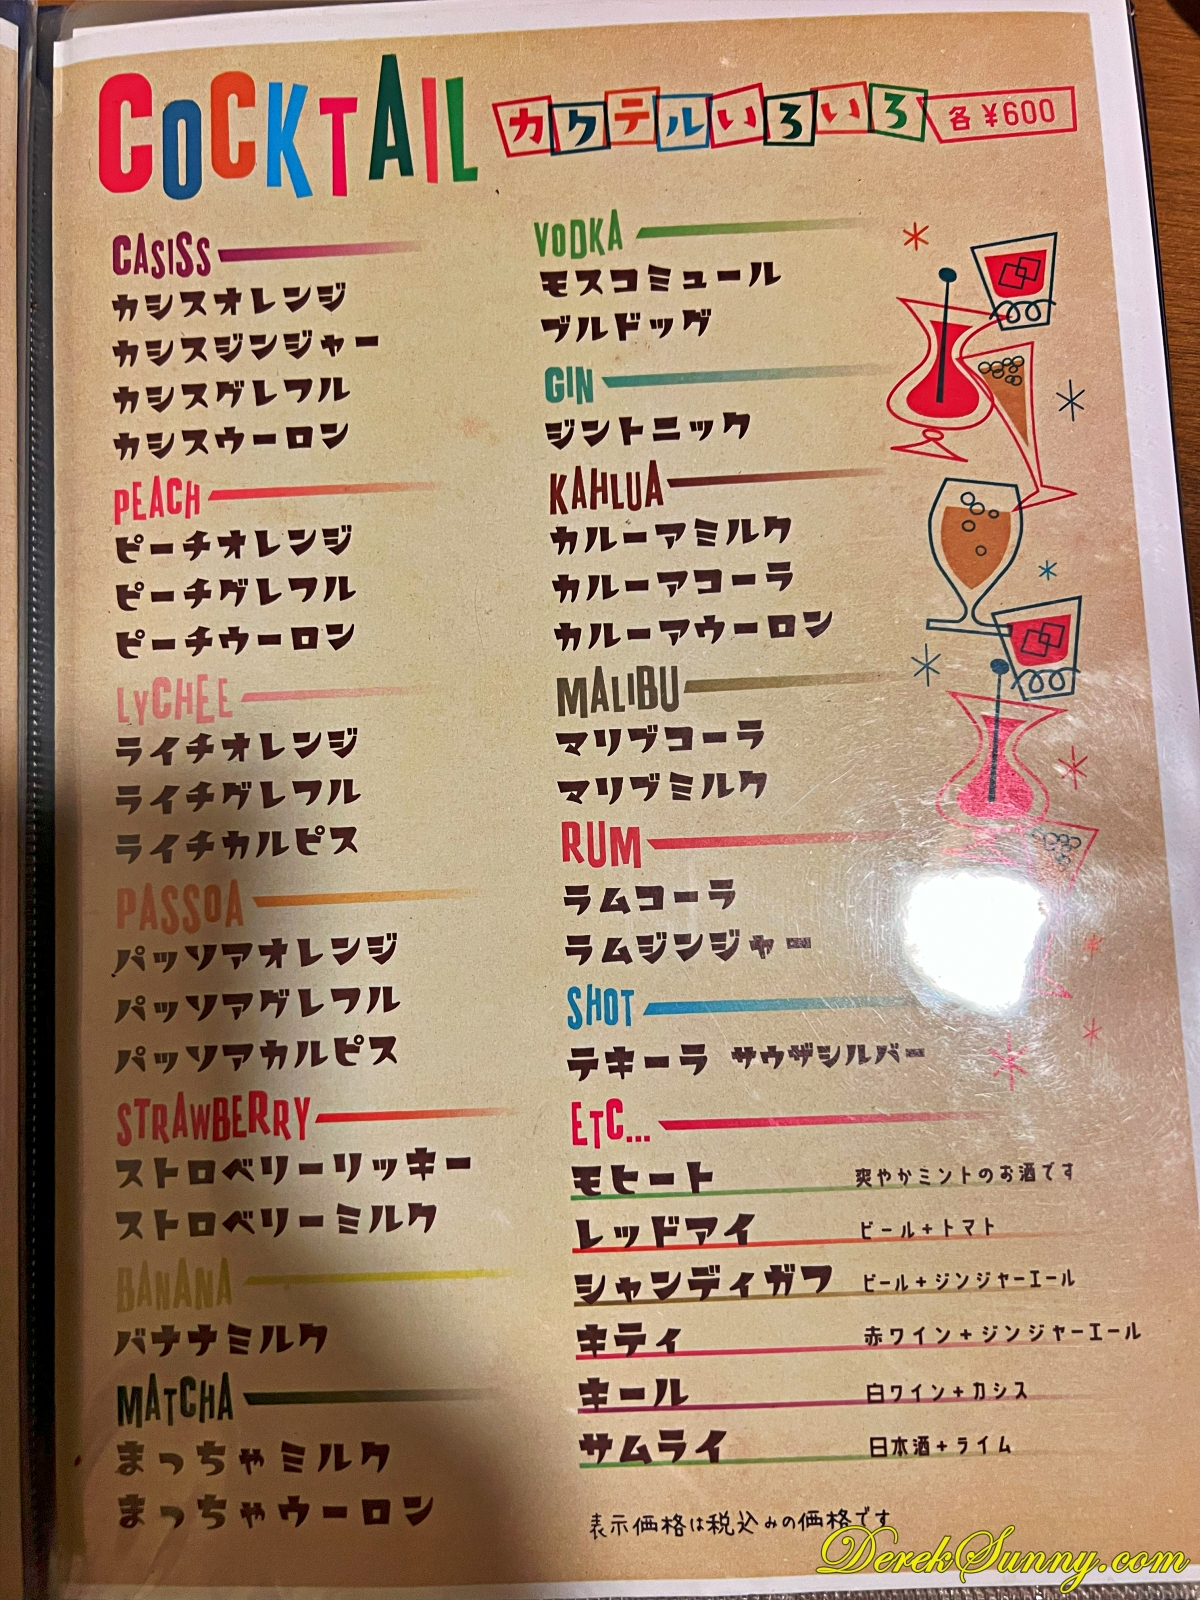 COCKTAIL
カクテルいろいろ 各¥600
CASISS
カシスオレンジ
カシスジンジャー
カシスグレフル
カシスウーロン
PEACH
ピーチオレンジ
ピーチグレフル
ピーチウーロン
LYCHEE
ライチオレンジ
ライチグレフル
ライチカルピス
PASSOA
パッソアオレンジ
パッソアグレフル
パッソアカルピス
STRAWBERRY
ストロベリーリッキー
ストロベリーミルク
BANANA
バナナミルク
MATCHA
まっちゃミルク
まっちゃウーロン
VODKA
モスコミュール
ブルドッグ
GIN
ジントニック
KAHLUA
カルーアミルク
カルーアコーラ
カルーアウーロン
MALIBU
マリブコーラ
マリブミルク
RUM
ラムコーラ
ラムジンジャー
SHOT
テキーラ サウザシルバー
ETC...
モヒート 爽やかミントのお酒です
レッドアイ ビール+トマト
シャンディガフ ビール+ジンジャーエール
キティ 赤ワイン+ジンジャーエール
キール 白ワイン+カシス
サムライ 日本酒+ライム
表示価格は税込みの価格です
DerekSunny.com